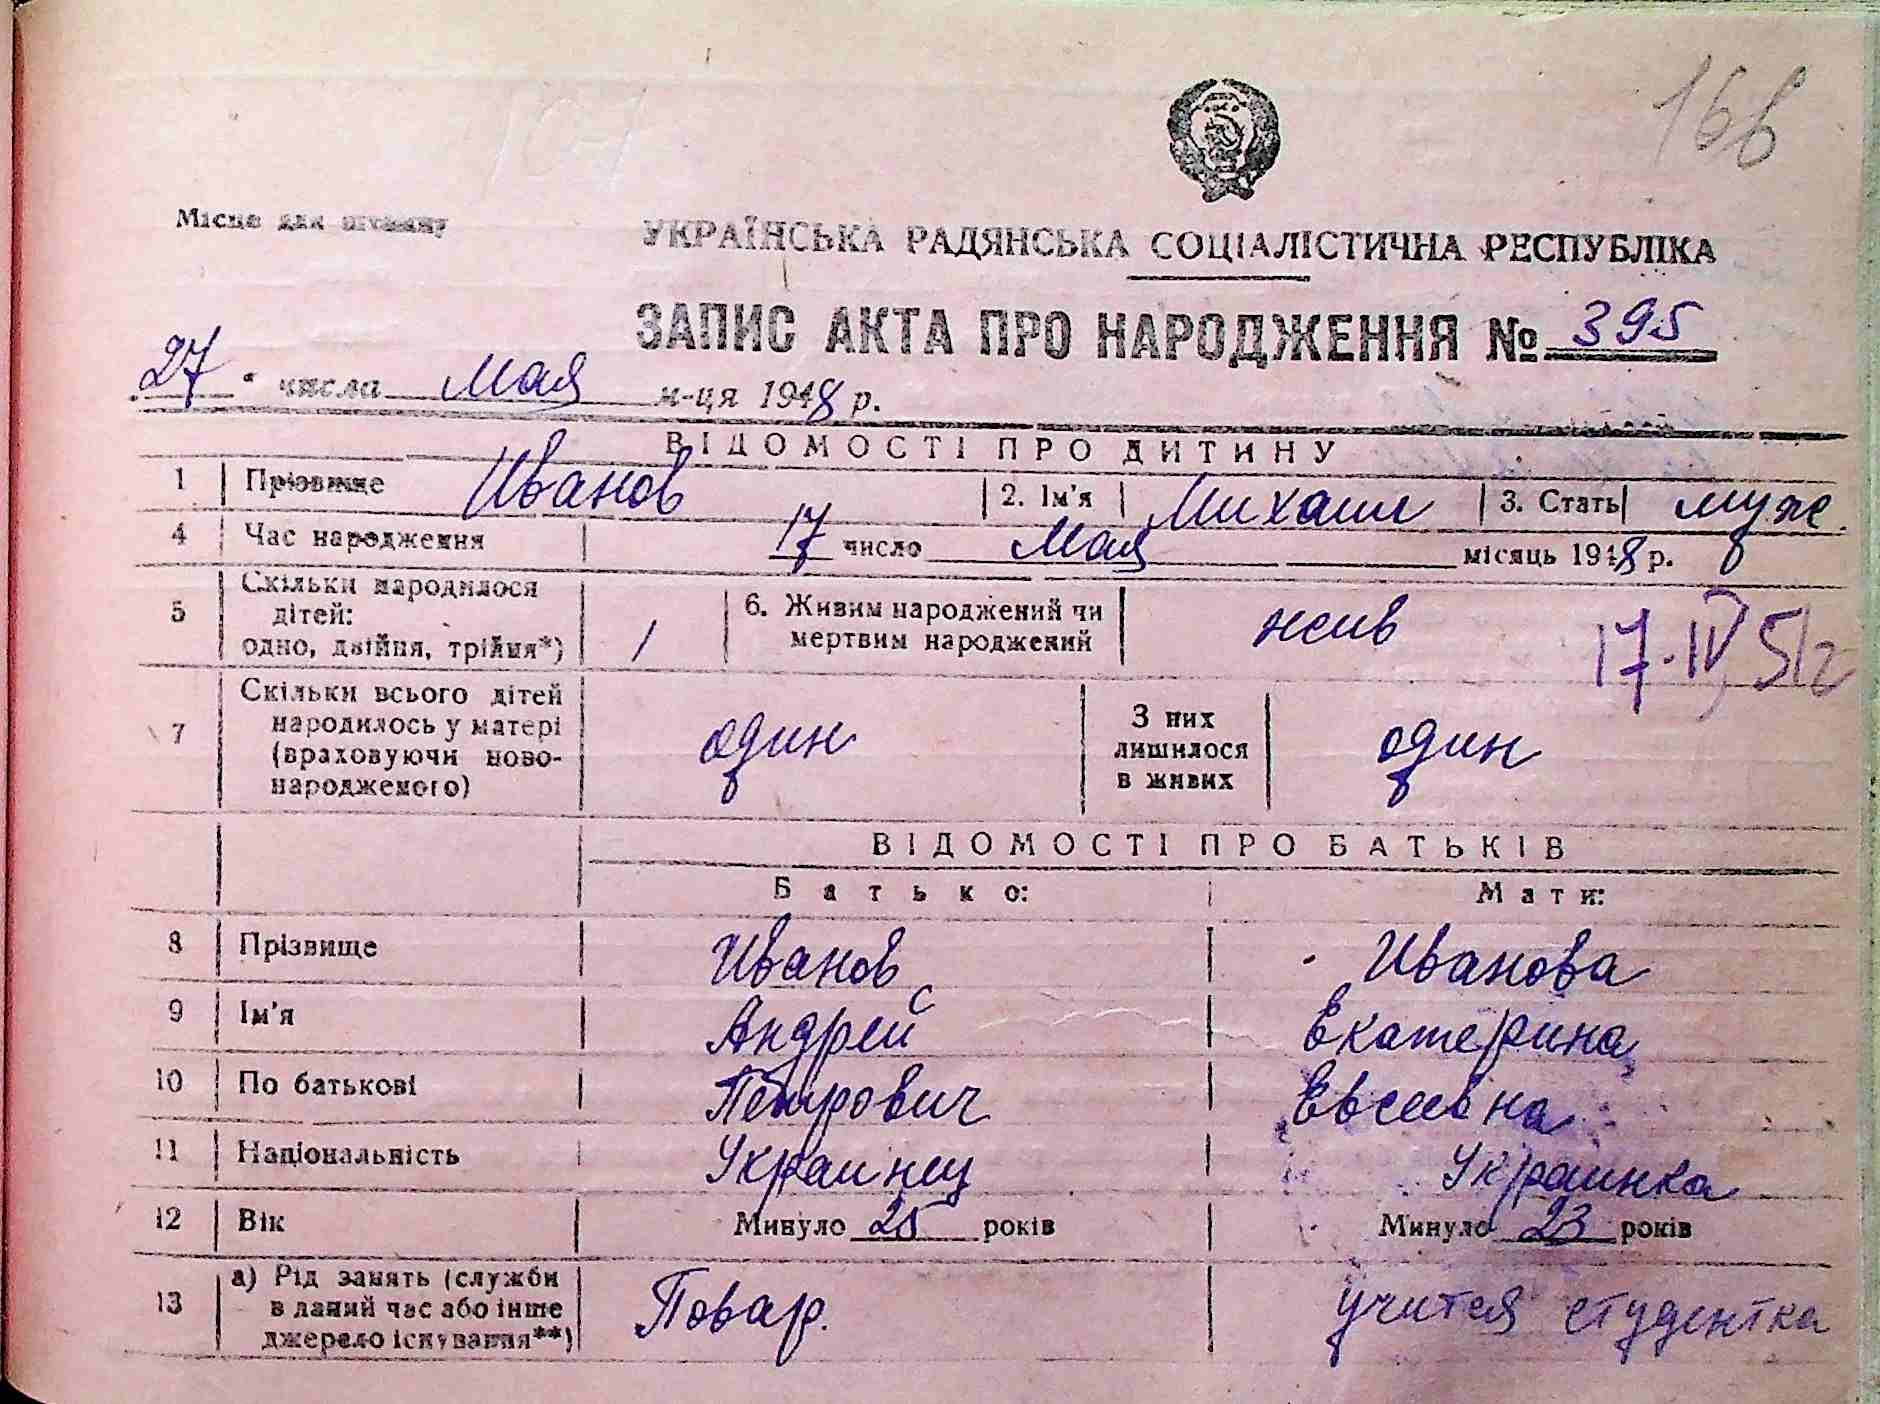 166
Місце для штампу
УКРАЇНСЬКА РАДЯНСЬКА СОЦІАЛІСТИЧНА РЕСПУБЛІКА
ЗАПИС АКТА ПРО НАРОДЖЕННЯ № 395
27 " числа мая м-ця 1948 р.
ВІДОМОСТІ ПРО ДИТИНУ
1 Прізвище Иванов 2. Ім'я Михаил 3. Стать муж.
4 Час народження 17 число мая місяць 1948 р.
5 Скільки народилося дітей: одно, двійня, трійня*) 1 6. Живим народжений чи мертвим народжений жив
17.IV 51г
7 Скільки всього дітей народилось у матері (враховуючи новонародженого) один З них лишилося в живих один
ВІДОМОСТІ ПРО БАТЬКІВ
Батько: Мати:
8 Прізвище Иванов Иванова
9 Ім'я Андрей Екатерина
10 По батькові Петрович Евсеевна
11 Національність Украинец Украинка
12 Вік Минуло 25 років Минуло 23 років
13 а) Рід занять (служби в даний час або інше джерело існування**) Повар. учится студентка